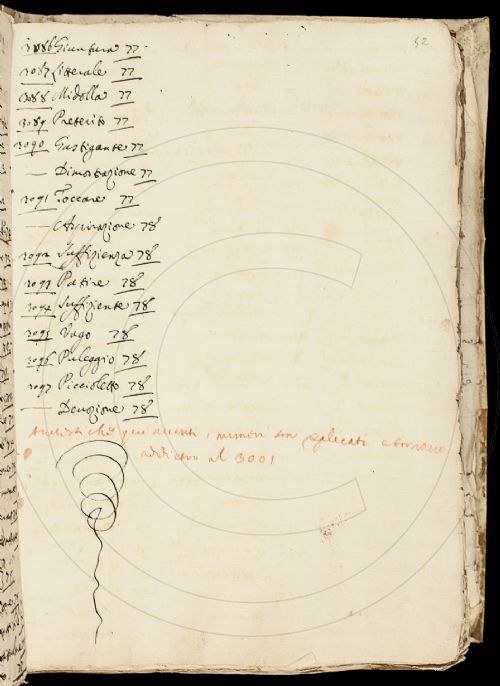 52
3086 Giuntura 77
3087 Litterale 77
3088 Midolla 77
3089 Preterito 77
3090 Gastigante 77
— Dimostrazione 77
3091 Toccare 77
— Aspirazione 78
3092 Suffizienza 78
3093 Patire 78
3094 Suffiziente 78
3095 Vago 78
3096 Puleggio 78
3097 Piccioletto 78
— Devozione 78
che qui avanti i numeri son replicati e tornano
addietro al 3001